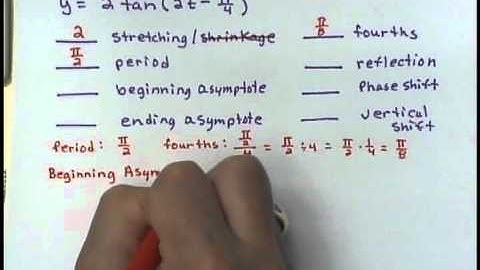 y = 2 tan(2t - π/4)
2 stretching/shrinkage π/8 fourths
π/2 period ___ reflection
___ beginning asymptote ___ Phase shift
___ ending asymptote ___ vertical shift
Period: π/2 fourths: π/2/4 = π/2 ÷ 4 = π/2 · 1/4 = π/8
Beginning Asym